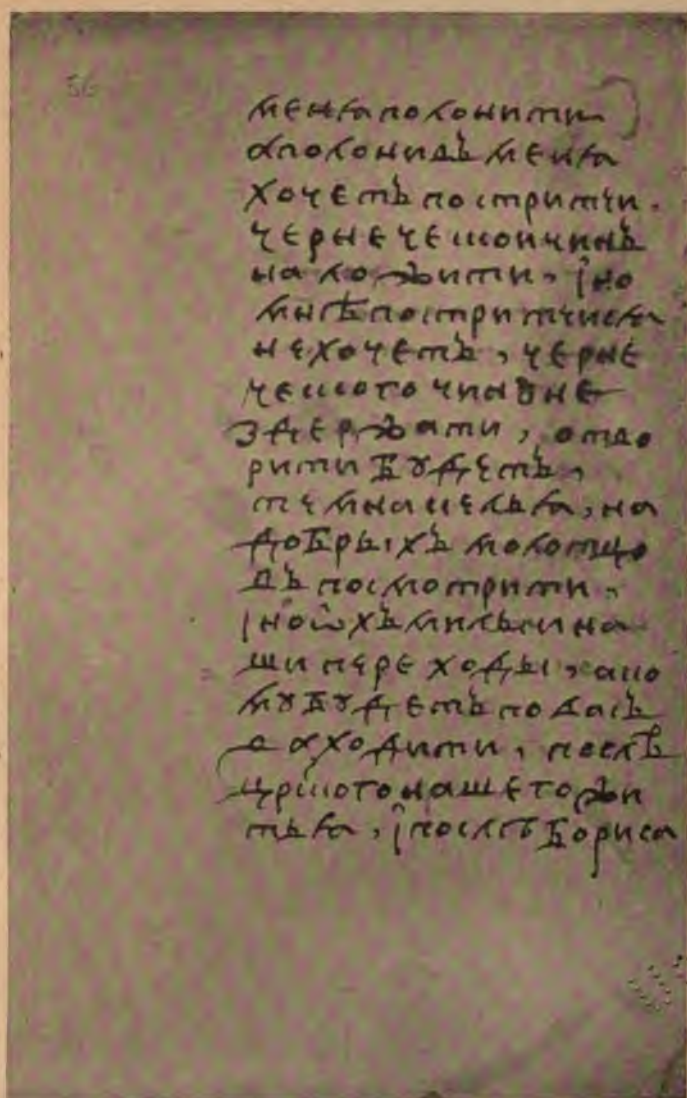 56
меня полонити
а полонивъ меня
хочетъ постритчи,
чернечешои чинъ
наложити, їно
мнѣ постритчися
не хочетъ, черне
чешого чинȣ не
здержати, отво
рити бꙋдетъ,
темна келья, на
добрыхъ молотцо
въ посмотрити,
їно ѡхъ милыи на
ши переходы, а ко
мꙋ бꙋдетъ по васъ
да ходити, послѣ
црького нашего жи
тья, ї послѣ Бориса